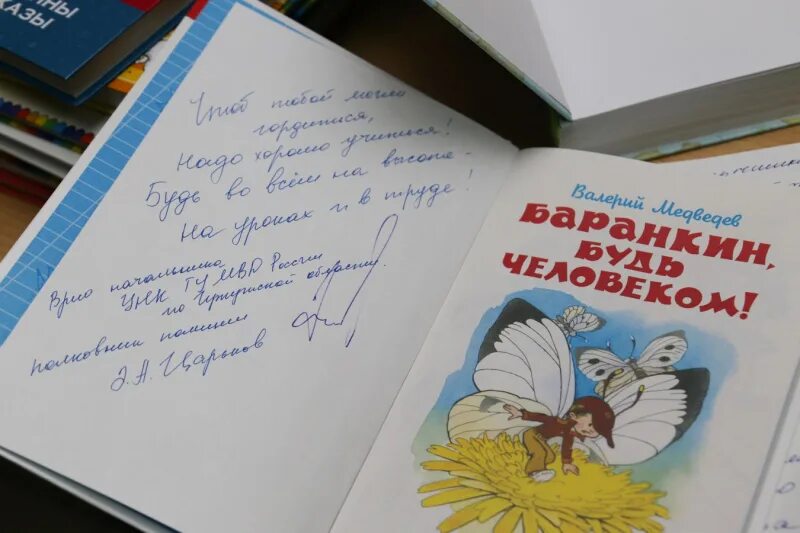 ИНЫ
КАЗЫ
Чтоб тобой могли
гордиться,
Надо хорошо учиться!
Будь во всём на высоте -
На уроках и в труде!
Врио начальника
УНК ГУ МВД России
по Иркутской области
полковник полиции
Э.А. Царьков
Валерий Медведев
БАРАНКИН,
БУДЬ
ЧЕЛОВЕКОМ!